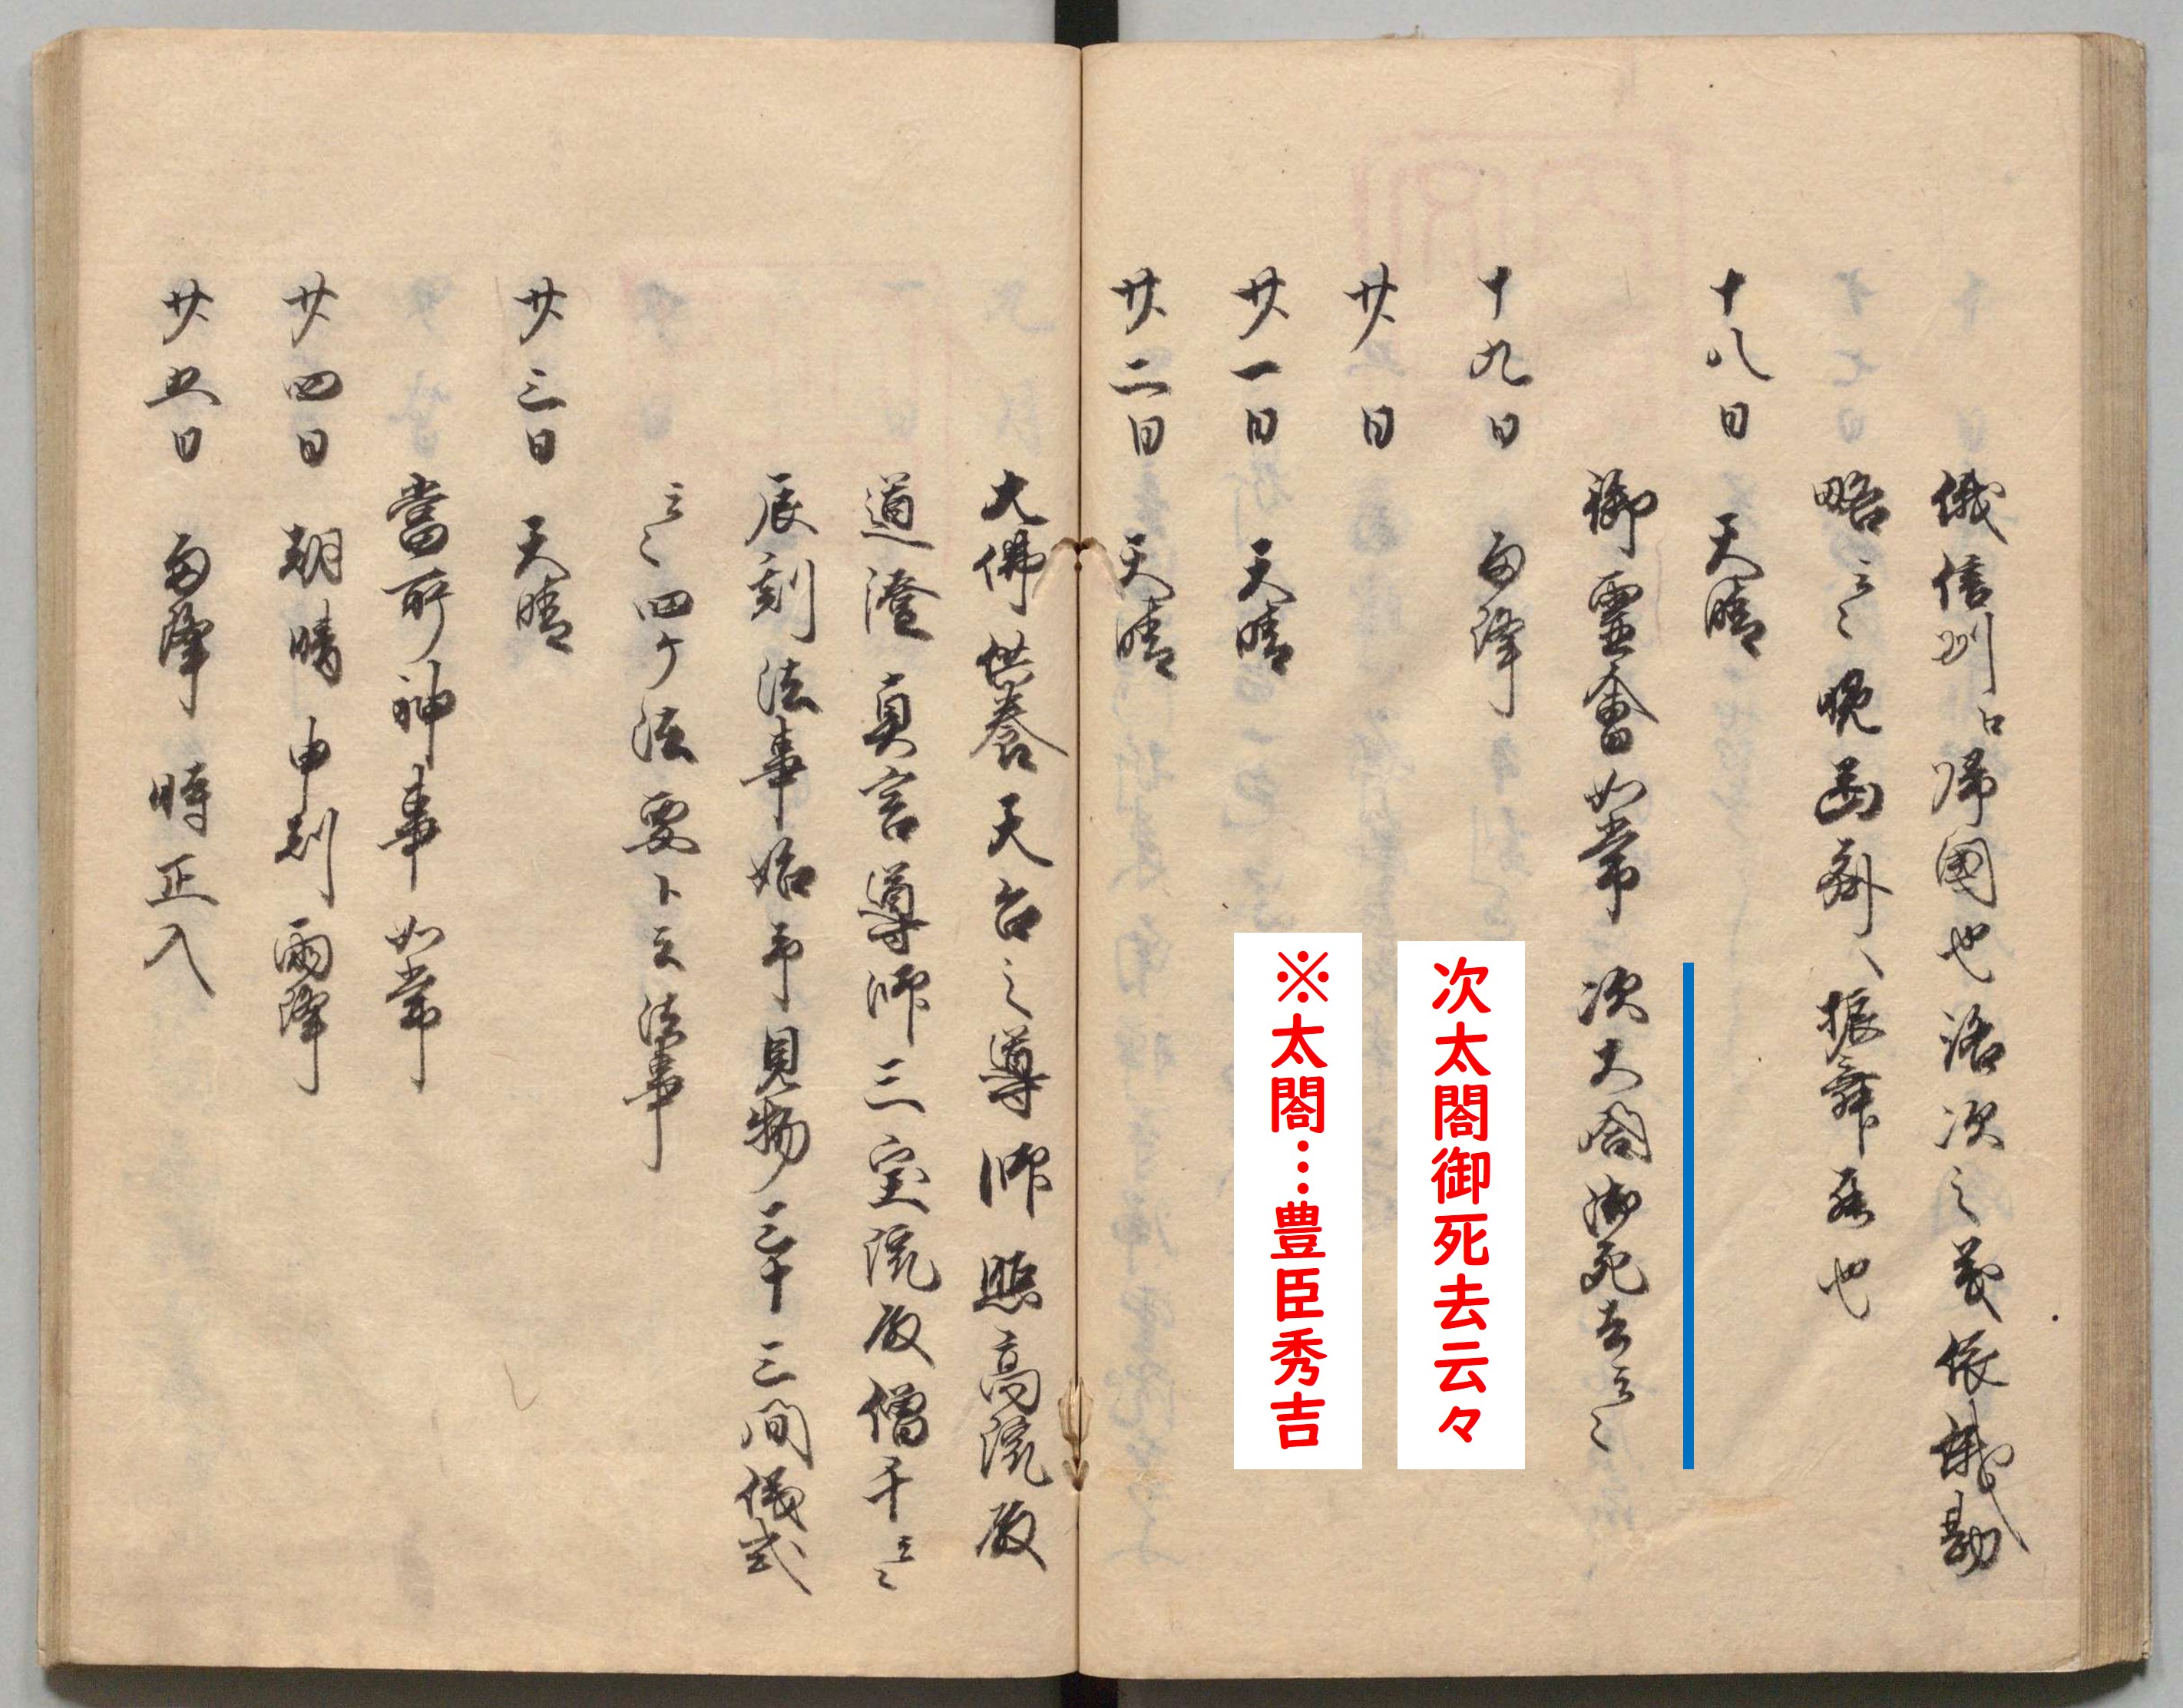 俄信州ニ帰國也 洛次之義依機勘
略云々 晩 齋 振舞 也
十八日 天晴
御霊會如常 次大閤御死去云々
十九日 雨降
次太閤御死去云々
廿日
※太閤…豊臣秀吉
廿一日 天晴
廿二日 天晴
大佛供養天台之導師照高院殿
道澄真言導師三宝院殿僧千云々
辰刻法事始 見物三十三間儀式
云々四ケ法要ト云法事
廿三日 天晴
當所神事如常
廿四日 朝晴 申刻雨降
廿五日 雨降 時正入